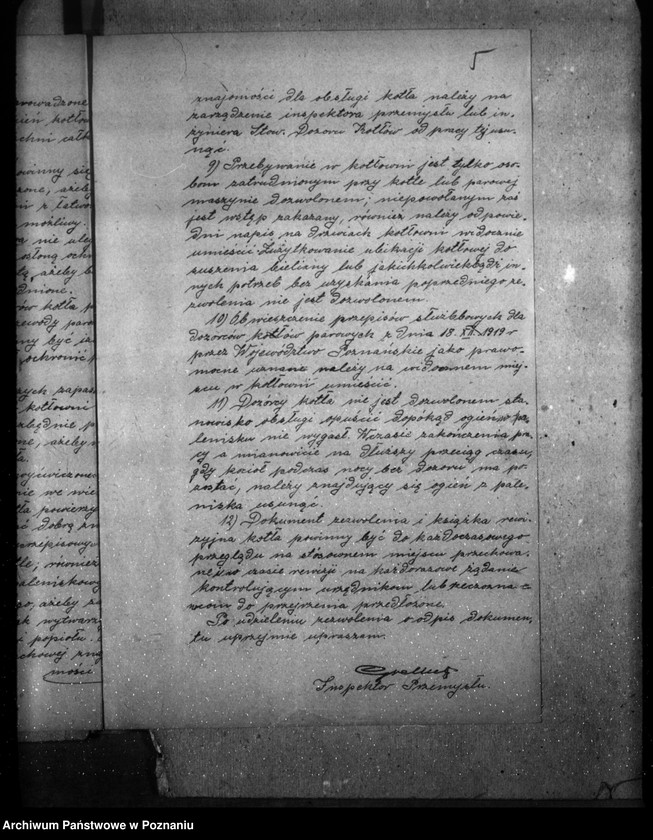 5
znajomości dla obsługi kotła należy na
zarządzenie inspektora przemysłu lub in-
żyniera Stow. Dozoru Kotłów od pracy tej usu-
nąć.
9) Przebywanie w kotłowni jest tylko oso-
bom zatrudnionym przy kotle lub parowej
maszynie dozwolonem; niepowołanym zaś
jest wstęp zakazany, również należy odpowie-
dni napis na drzwiach kotłowni widocznie
umieścić. Zużytkowanie ubikacji kotłowej do
suszenia bielizny lub jakichkolwiekbądź in-
nych potrzeb bez uzyskania poprzedniego ze-
zwolenia nie jest dozwolonem.
10) Obwieszczenie przepisów służbowych dla
dozorców kotłów parowych z dnia 18. XII. 1919 r
przez Województwo Poznańskie jako prawo-
mocne uznane należy na widocznem miej-
scu w kotłowni umieścić.
11) Dozorcy kotła nie jest dozwolonem sta-
nowisko obsługi opuścić dopókąd ogień w pa-
lenisku nie wygasł. W czasie zakończenia pra-
cy a mianowicie na dłuższy przeciąg czasu,
gdy kocioł podczas nocy bez dozoru ma po-
zostać, należy znajdujący się ogień z pale-
niska usunąć.
12) Dokument zezwolenia i książka rewi-
zyjna kotła powinny być do każdoczasowego
przeglądu na stosownem miejscu przechowa-
ne i w czasie rewizji na każdorazowe żądanie
kontrolującym urzędnikom lub rzeczozna-
wcom do przejrzenia przedłożone.
Po udzieleniu zezwolenia o odpis dokumen-
tu uprzejmie upraszam.
Inspektor Przemysłu.
Archiwum Państwowe w Poznaniu